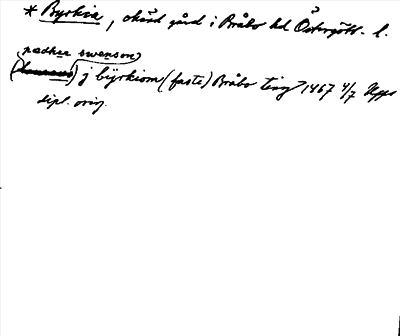 * Byrkia, okänd gård i Bråbo hd Östergötl. l.
pædher swenson)
(laurens) j byrkiom (faste) Bråbo ting 1467 4/7 Upps
dipl. orig.